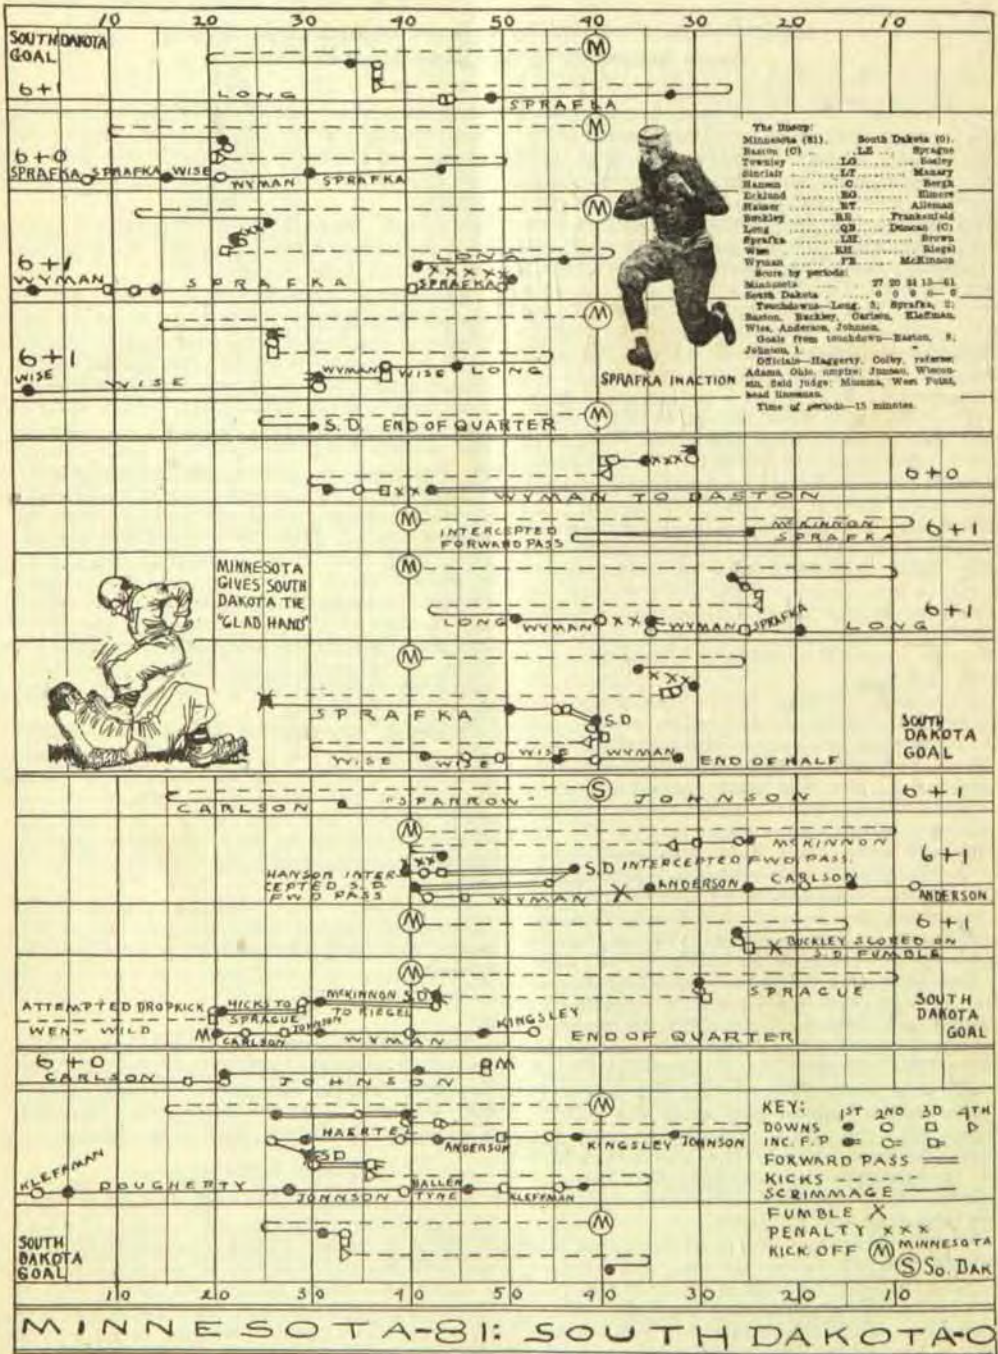 10 20 30 40 50 40 30 20 10
SOUTH DAKOTA
GOAL
6+1
LONG
SPRAFKA
M
M
6+0
SPRAFKA SPRAFKA WISE
WYMAN SPRAFKA
M
6+1
WYMAN
SPRAFKA
LONG
XXXXX
SPRAFKA
M
6+1
WISE
WISE
WYMAN
WISE LONG
M
S.D. END OF QUARTER
The lineup:
Minnesota (81). South Dakota (0).
Baston (C) .. LE .. Sprague
Townley LG
Sinclair LT Manary
Hansen C Bergh
Ecklund RG Elmore
Hauser RT Alleman
Buckley RE Frankenfeld
Long QB Duncan (C)
Sprafka LH Brown
Wise RH Riegel
Wyman FB McKinnon
Score by periods:
Minnesota 27 20 21 13—81
South Dakota 0 0 0 0—0
Touchdowns—Long, 3; Sprafka, 2;
Baston, Buckley, Carlson, Kleffman,
Wise, Anderson, Johnson.
Goals from touchdown—Baston, 8;
Johnson, 1.
Officials—Haggerty, Colby, referee;
Adams, Ohio, umpire; Juneau, Wiscon-
sin, field judge; Mumma, West Point,
head linesman.
Time of periods—15 minutes.
SPRAFKA IN ACTION
XXX
6+0
XX
WYMAN TO BASTON
M
INTERCEPTED
FORWARD PASS
MCKINNON
SPRAFKA
6+1
MINNESOTA
GIVES SOUTH
DAKOTA THE
"GLAD HAND"
M
LONG WYMAN XX WYMAN SPRAFKA LONG
6+1
M
XXX
SPRAFKA
S.D
SOUTH
DAKOTA
GOAL
WISE WISE WISE WYMAN END OF HALF
CARLSON "SPARROW" S JOHNSON 6+1
M
MCKINNON
6+1
XXX
HANSON INTER
CEPTED S.D.
FWD PASS
S.D INTERCEPTED FWD PASS
WYMAN X ANDERSON CARLSON
ANDERSON
M
6+1
X BUCKLEY SCORED ON
S.D. FUMBLE
M
SPRAGUE
ATTEMPTED DROPKICK
WENT WILD
HICKS TO
SPRAGUE
MCKINNON S.D
TO RIEGEL
SOUTH
DAKOTA
GOAL
M CARLSON JOHNSON WYMAN KINGSLEY
END OF QUARTER
6+0
CARLSON JOHNSON M
M
HAERTEL
ANDERSON KINGSLEY JOHNSON
S.D
KLEFFMAN
DOUGHERTY JOHNSON BALLEN
TYNE KLEFFMAN
M
SOUTH
DAKOTA
GOAL
KEY: 1ST 2ND 3D 4TH
DOWNS
INC. F.P
FORWARD PASS
KICKS
SCRIMMAGE
FUMBLE X
PENALTY XXX
KICK OFF M MINNESOTA
S SO. DAK
10 20 30 40 50 40 30 20 10
MINNESOTA-81: SOUTH DAKOTA-0